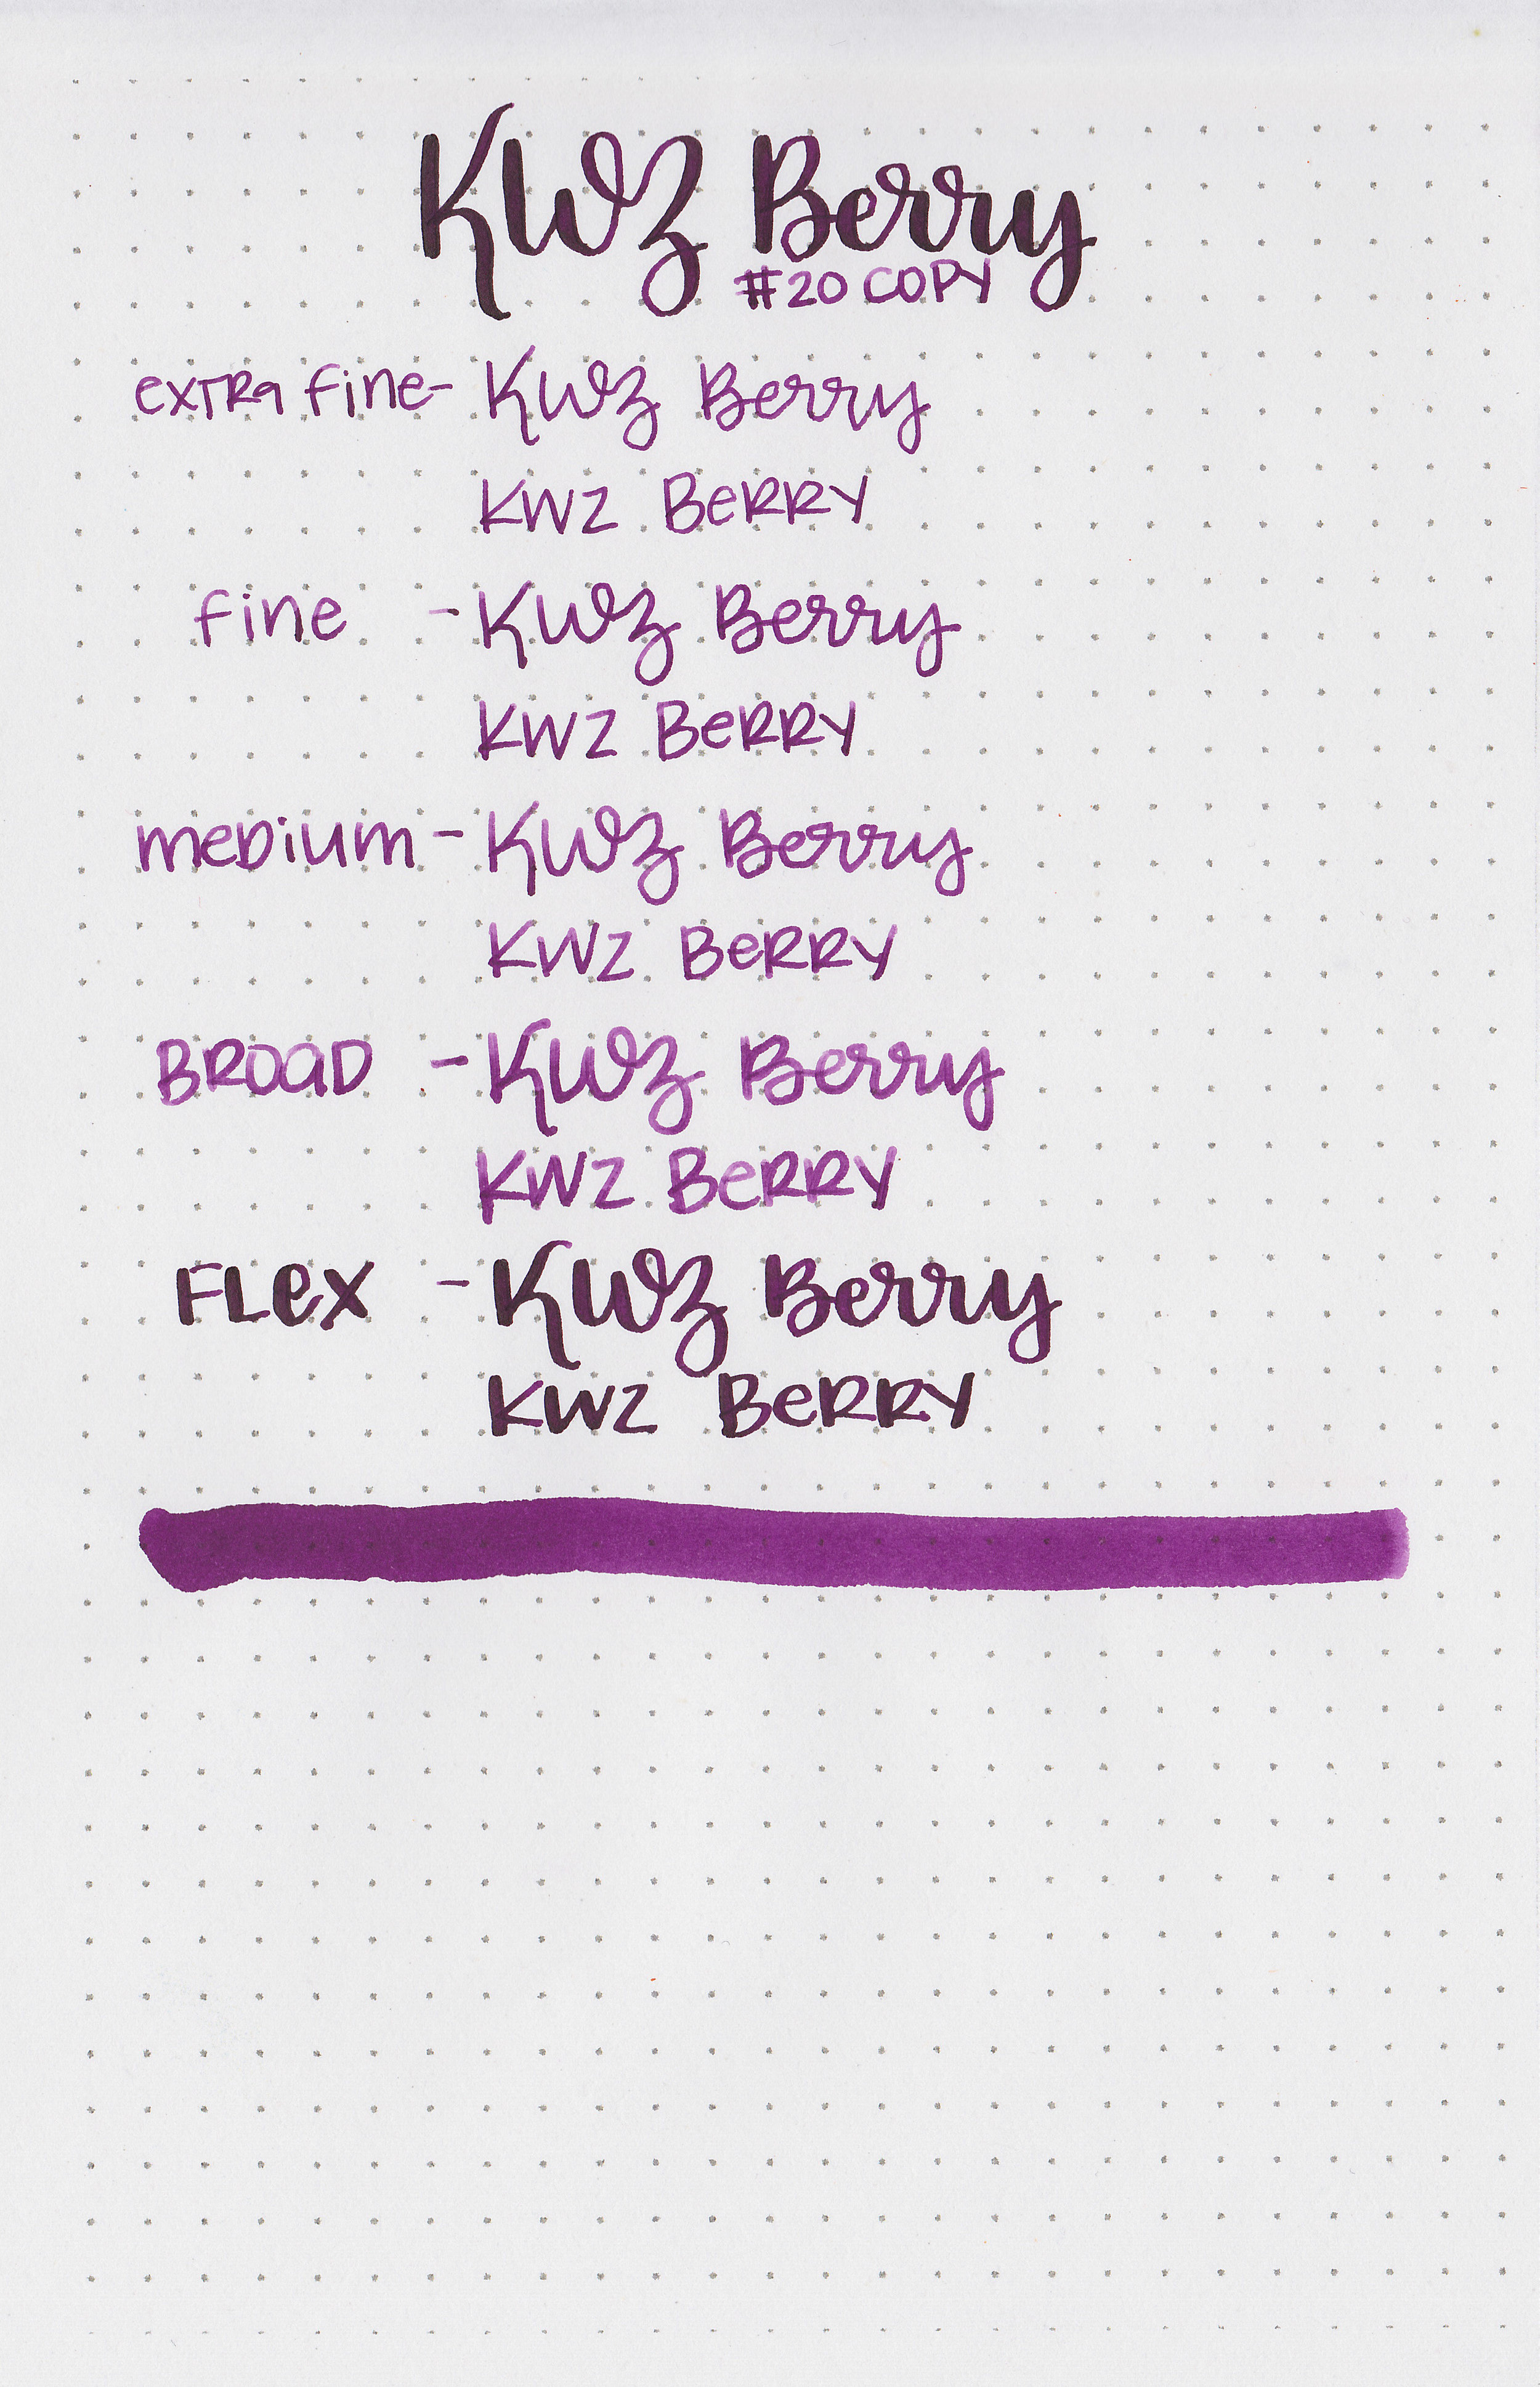 KWZ Berry
#20 COPY
extra fine- KWZ Berry
KWZ BeRRY
fine - KWZ Berry
KWZ BeRRY
meDium - KWZ Berry
KWZ BeRRY
BROaD - KWZ Berry
KWZ BeRRY
FLex - KWZ Berry
KWZ BeRRY